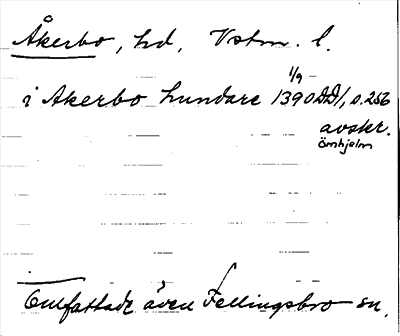 Åkerbo, hd, Vstm. l.
1/9
i Akerbo hundare 1390 DD1, s. 256
avskr.
Örnhjelm
Omfattade även Fellingsbro sn.